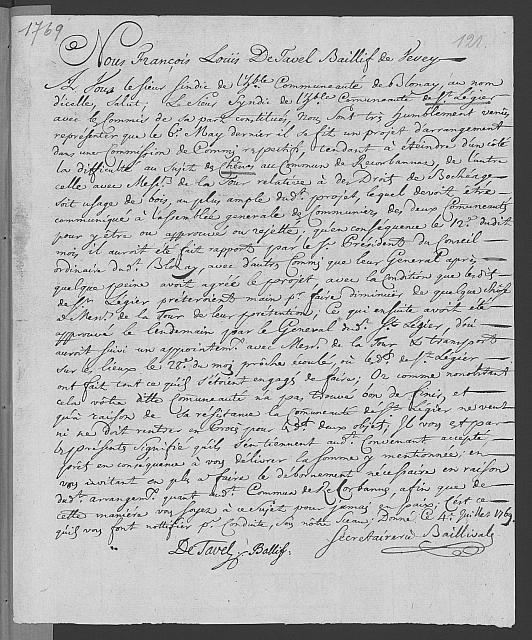 1769
121.
Nous François Loüis De Tavel Baillif de Vevey
A Vous le Sieur Sindic de l'hble Communeauté de Blonay, au nom
d'icelle, Salut; Le Sieur Syndic de l'hble Comunauté de St Légier
avec le Commis de sa part constitués, Nous sont très humblement venus
représenter que le 6e May dernier il se fit un projet d'arrangement
dans une Commission de Commis respectifs, tendant à éteindre d'un côté
la difficulté au Sujet de au Commun de de l'autre
celle avec Messrs de la Tour relative à des Droit de Bochéage
soit usage de bois, au plus ample dudt projet, lequel devoit être
communiqué à l'assemblée générale des Communiers des deux Comunautés
pour y être ou approuvés ou rejetté, qu'en conséquence le 12e dudit
mois il auroit été fait rapport par le Sr Président du Conseil
ordinaire dudt Blonay, avec d'autres Commis que leur Général après
quelque peine avoit agréé le projet, avec la Condition que les dts
de St Légier prêteroient main pr faire diminuer de quelque chose
à Messrs de la Tour de leur prétention; ce qui ensuite avoit été
approuvé le lendemain par le General dudt St Légier, d'où
auroit suivi un appointement avec Messrs de la Tour & transport
sur le lieux le 28e du mois prôche écoulé, où les dts de St Légier
ont fait tout ce qu'ils s'étoient engagés de faire; Or comme nonobstant
cela vôtre ditte Comunauté n'a pas trouvé bon de finir, et
qu'à raison de sa résistance la Comunauté de St Légier ne veut
ni ne doit rentrer en Procès pour les dts deux objets, Il vous est par
les présents signifié qu'ils s'en tiennent audt Convenant accepté,
prêt en conséquence à vous délivrer la Somme y mentionnée, en
vous invitant en plus à faire le débornement nécessaire en raison
dudt arrangemt quant audt Commun de afin que de
cette manière vous soyés à ce Sujet pour jamais en paix; C'est ce
qu'ils vous font notiffier pr Conduite, sous nôtre Sceau; Donné ce 4e Juillet 1769
De Tavel, Ballif.
Secretairerie Baillivale